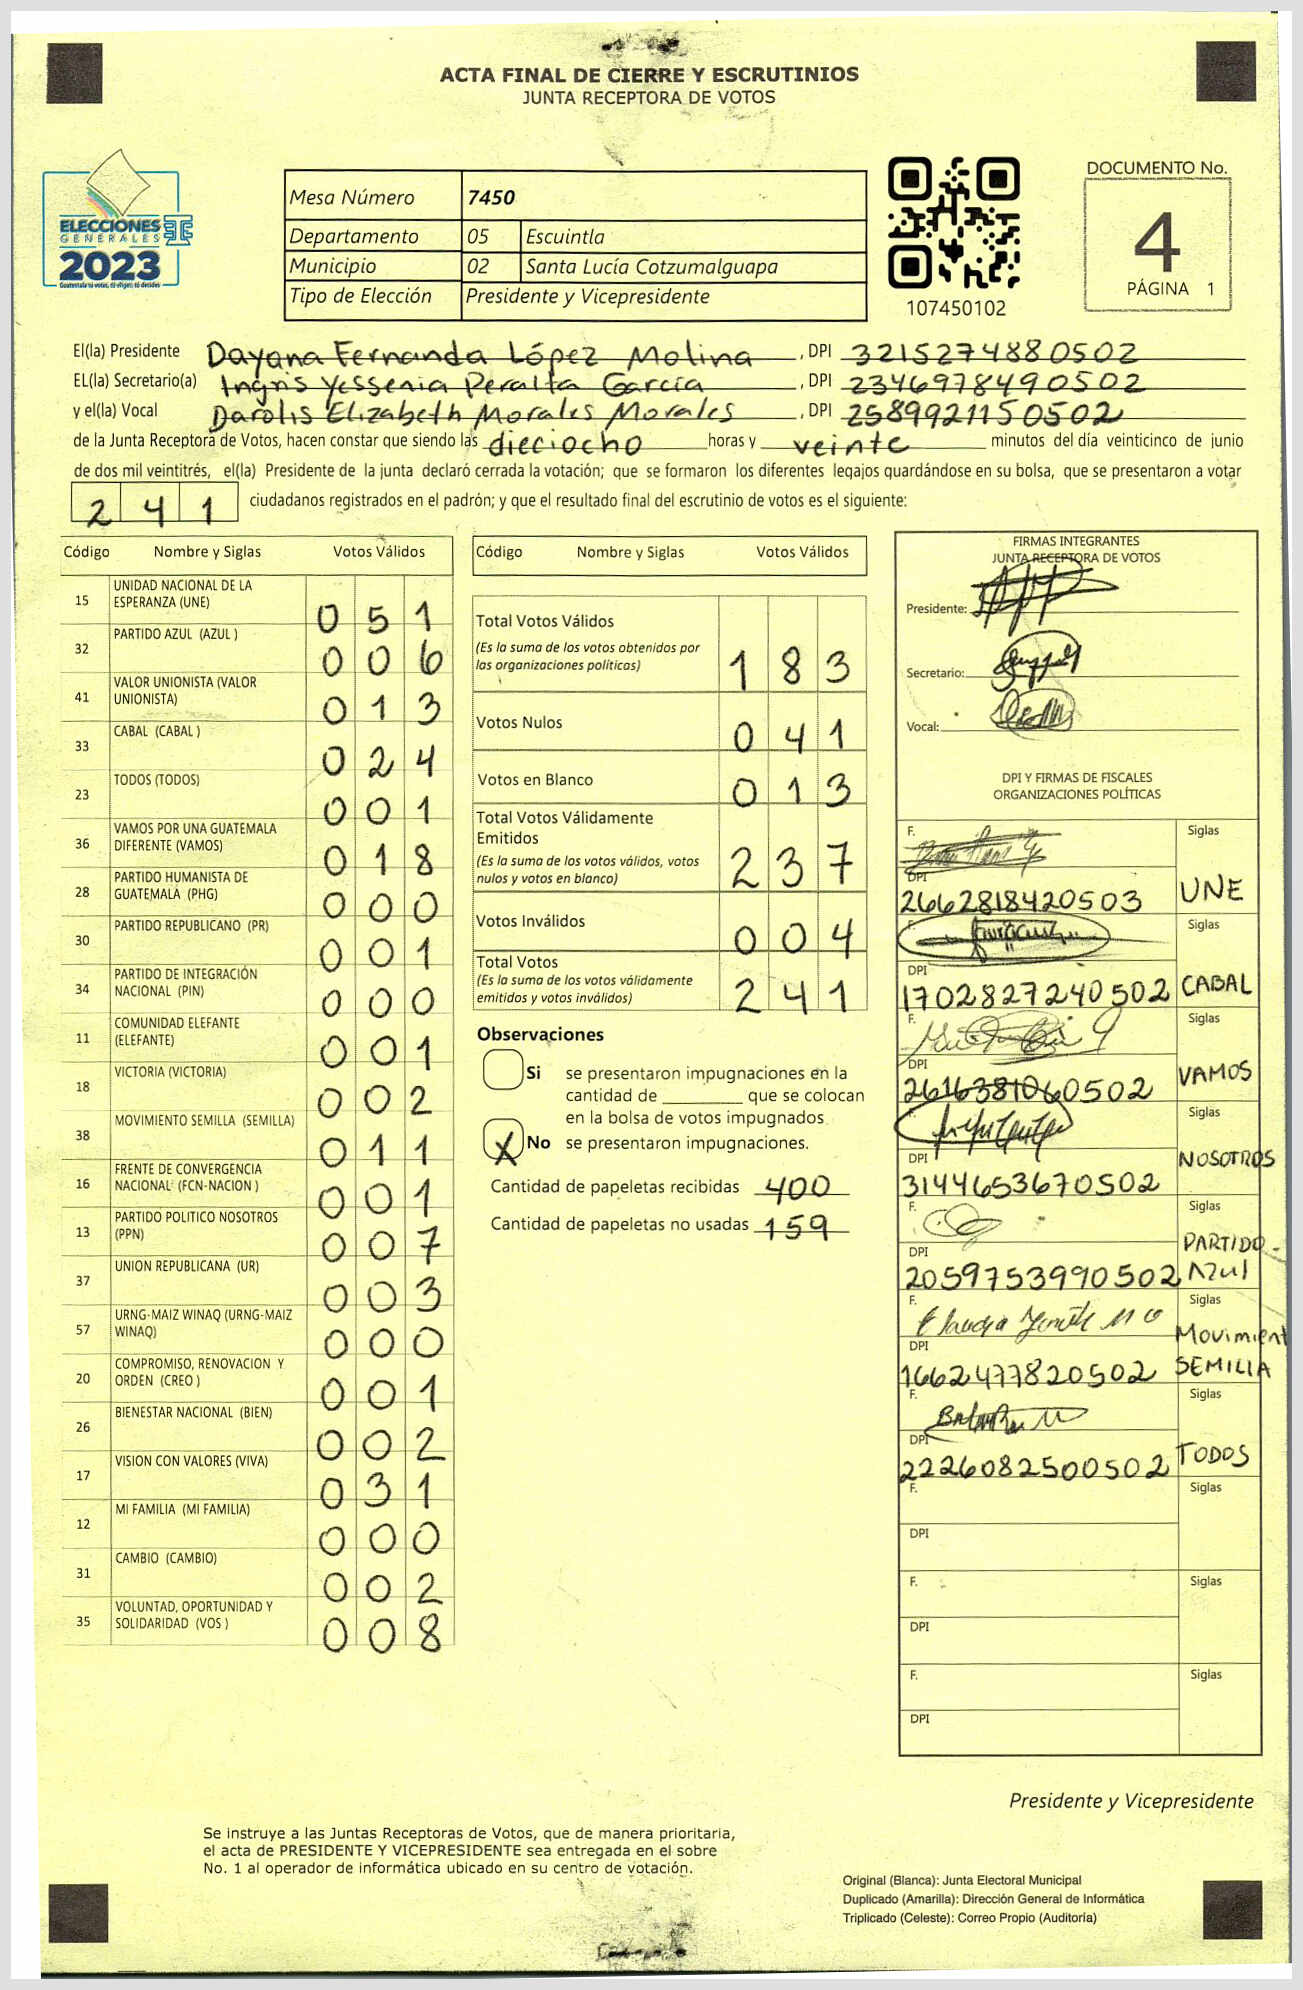 ACTA FINAL DE CIERRE Y ESCRUTINIOS
JUNTA RECEPTORA DE VOTOS
ELECCIONES
GENERALES
2023
Guatemala tú votas, tú eliges, tú decides
Mesa Número 7450
Departamento 05 Escuintla
Municipio 02 Santa Lucía Cotzumalguapa
Tipo de Elección Presidente y Vicepresidente
107450102
DOCUMENTO No.
4
PÁGINA 1
El(la) Presidente Dayana Fernanda López Molina , DPI 3215274880502
EL(la) Secretario(a) Ingris Yessenia Peralta García , DPI 2346978490502
y el(la) Vocal Darolis Elizabeth Morales Morales , DPI 2589921150502
de la Junta Receptora de Votos, hacen constar que siendo las dieciocho horas y veinte minutos del día veinticinco de junio
de dos mil veintitrés, el(la) Presidente de la junta declaró cerrada la votación; que se formaron los diferentes legajos guardándose en su bolsa, que se presentaron a votar
241 ciudadanos registrados en el padrón; y que el resultado final del escrutinio de votos es el siguiente:
Código Nombre y Siglas Votos Válidos
15 UNIDAD NACIONAL DE LA
ESPERANZA (UNE) 051
32 PARTIDO AZUL (AZUL ) 006
41 VALOR UNIONISTA (VALOR
UNIONISTA) 013
33 CABAL (CABAL ) 024
23 TODOS (TODOS) 001
36 VAMOS POR UNA GUATEMALA
DIFERENTE (VAMOS) 018
28 PARTIDO HUMANISTA DE
GUATEMALA (PHG) 000
30 PARTIDO REPUBLICANO (PR) 001
34 PARTIDO DE INTEGRACIÓN
NACIONAL (PIN) 000
11 COMUNIDAD ELEFANTE
(ELEFANTE) 001
18 VICTORIA (VICTORIA) 002
38 MOVIMIENTO SEMILLA (SEMILLA) 011
16 FRENTE DE CONVERGENCIA
NACIONAL (FCN-NACION ) 001
13 PARTIDO POLITICO NOSOTROS
(PPN) 007
37 UNION REPUBLICANA (UR) 003
57 URNG-MAIZ WINAQ (URNG-MAIZ
WINAQ) 000
20 COMPROMISO, RENOVACION Y
ORDEN (CREO ) 001
26 BIENESTAR NACIONAL (BIEN) 002
17 VISION CON VALORES (VIVA) 031
12 MI FAMILIA (MI FAMILIA) 000
31 CAMBIO (CAMBIO) 002
35 VOLUNTAD, OPORTUNIDAD Y
SOLIDARIDAD (VOS ) 008
Código Nombre y Siglas Votos Válidos
Total Votos Válidos
(Es la suma de los votos obtenidos por
las organizaciones políticas) 183
Votos Nulos 041
Votos en Blanco 013
Total Votos Válidamente
Emitidos
(Es la suma de los votos válidos, votos
nulos y votos en blanco) 237
Votos Inválidos 004
Total Votos
(Es la suma de los votos válidamente
emitidos y votos inválidos) 241
Observaciones
Si se presentaron impugnaciones en la
cantidad de ________ que se colocan
en la bolsa de votos impugnados.
X No se presentaron impugnaciones.
Cantidad de papeletas recibidas 400
Cantidad de papeletas no usadas 159
FIRMAS INTEGRANTES
JUNTA RECEPTORA DE VOTOS
Presidente:
Secretario:
Vocal:
DPI Y FIRMAS DE FISCALES
ORGANIZACIONES POLÍTICAS
F. Siglas
DPI
2662818420503 UNE
F. Siglas
DPI
1702827240502 CABAL
F. Siglas
DPI
2616381060502 VAMOS
F. Siglas
DPI
3144653670502 NOSOTROS
F. Siglas
DPI
2059753990502 PARTIDO Azul
F. Siglas
DPI
1662477820502 Movimient SEMILIA
F. Siglas
DPI
2226082500502 TODOS
F. Siglas
DPI
F. Siglas
DPI
F. Siglas
DPI
Presidente y Vicepresidente
Se instruye a las Juntas Receptoras de Votos, que de manera prioritaria,
el acta de PRESIDENTE Y VICEPRESIDENTE sea entregada en el sobre
No. 1 al operador de informática ubicado en su centro de votación.
Original (Blanca): Junta Electoral Municipal
Duplicado (Amarilla): Dirección General de Informática
Triplicado (Celeste): Correo Propio (Auditoría)